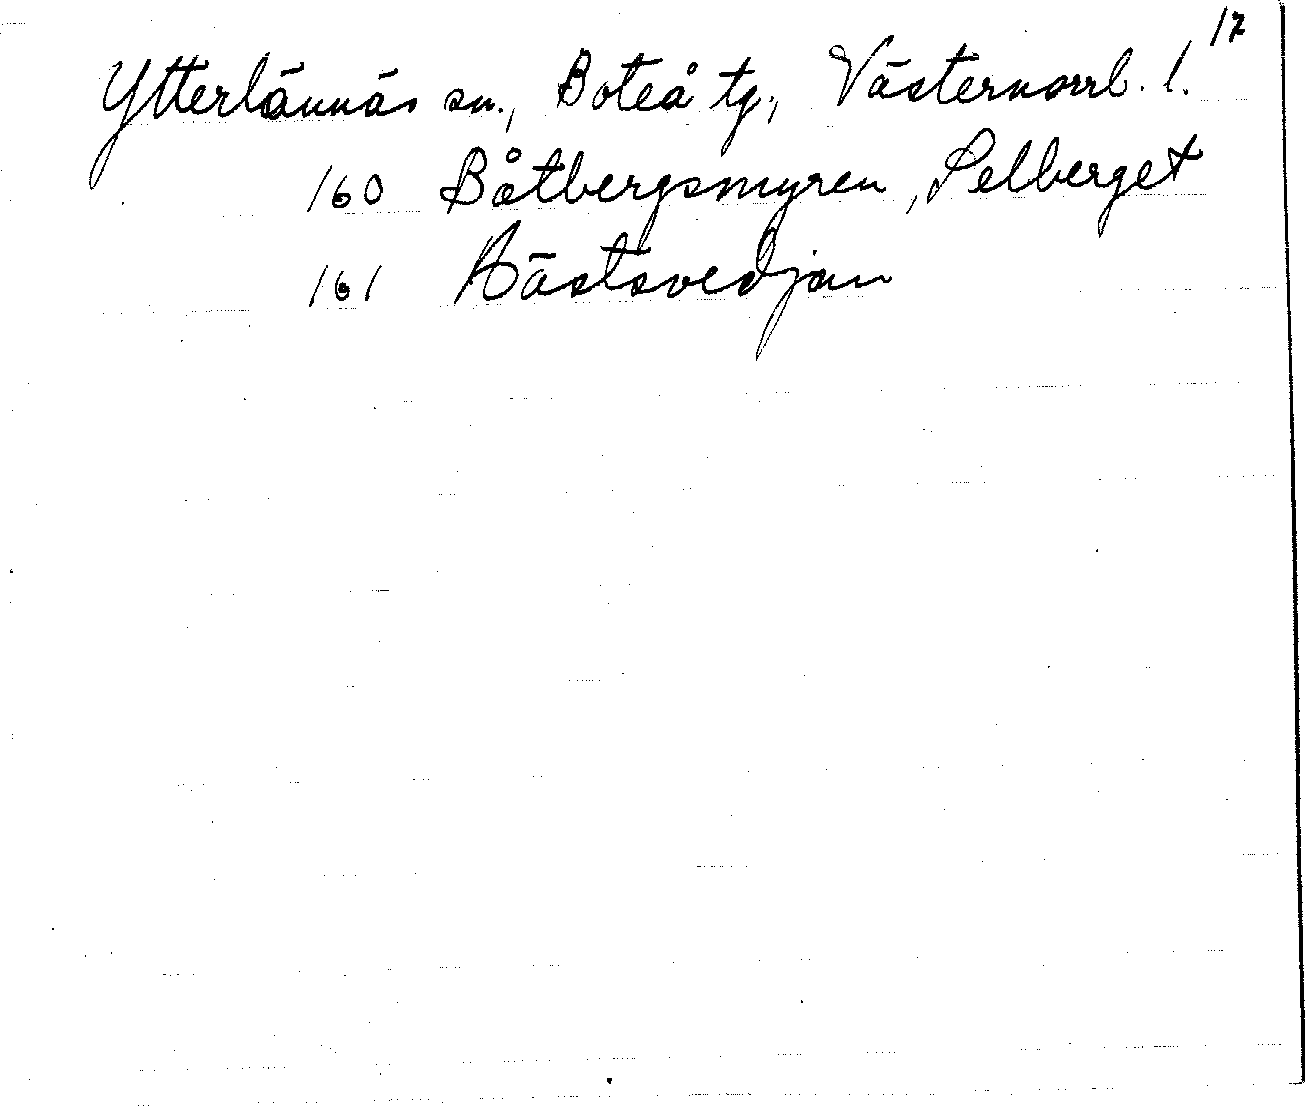 17
Ytterlännäs sn., Boteå tg., Västernorrl. l.
160 Båtbergsmyren, Selberget
161 Hästsvedjan